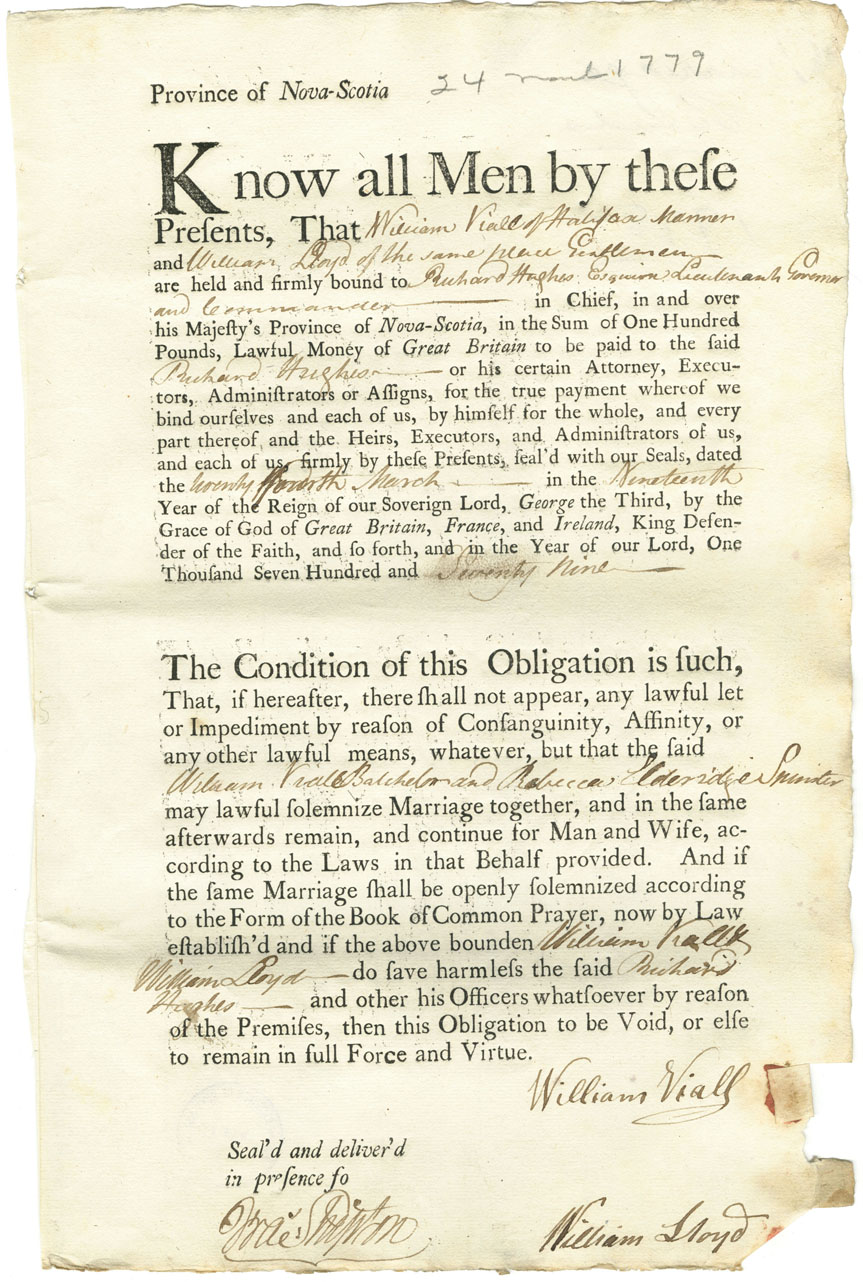 24 March 1779
Province of Nova-Scotia
Know all Men by theſe
Preſents, That William Viall of Halifax Mariner
and William Lloyd of the same place Gentlemen
are held and firmly bound to Richard Hughes Esquire Lieutenant Governor
and Commander in Chief, in and over
his Majeſty's Province of Nova-Scotia, in the Sum of One Hundred
Pounds, Lawful Money of Great Britain to be paid to the ſaid
Richard Hughes or his certain Attorney, Execu-
tors, Adminiſtrators or Aſſigns, for the true payment whereof we
bind ourſelves and each of us, by himſelf for the whole, and every
part thereof and the Heirs, Executors, and Adminiſtrators of us,
and each of us, firmly by theſe Preſents, ſeal'd with our Seals, dated
the twenty ffourth March in the Nineteenth
Year of the Reign of our Soverign Lord, George the Third, by the
Grace of God of Great Britain, France, and Ireland, King Defen-
der of the Faith, and ſo forth, and in the Year of our Lord, One
Thouſand Seven Hundred and Seventy Nine
The Condition of this Obligation is ſuch,
That, if hereafter, there ſhall not appear, any lawful let
or Impediment by reaſon of Conſanguinity, Affinity, or
any other lawful means, whatever, but that the ſaid
William Viall Batchelor and Rebecca Elderidge Spinster
may lawful ſolemnize Marriage together, and in the ſame
afterwards remain, and continue for Man and Wife, ac-
cording to the Laws in that Behalf provided. And if
the ſame Marriage ſhall be openly ſolemnized according
to the Form of the Book of Common Prayer, now by Law
eſtabliſh'd and if the above bounden William Viall &
William Lloyd do ſave harmleſs the ſaid Richard
Hughes and other his Officers whatſoever by reaſon
of the Premiſes, then this Obligation to be Void, or elſe
to remain in full Force and Virtue.
William Viall
Seal'd and deliver'd
in preſence fo
William Lloyd